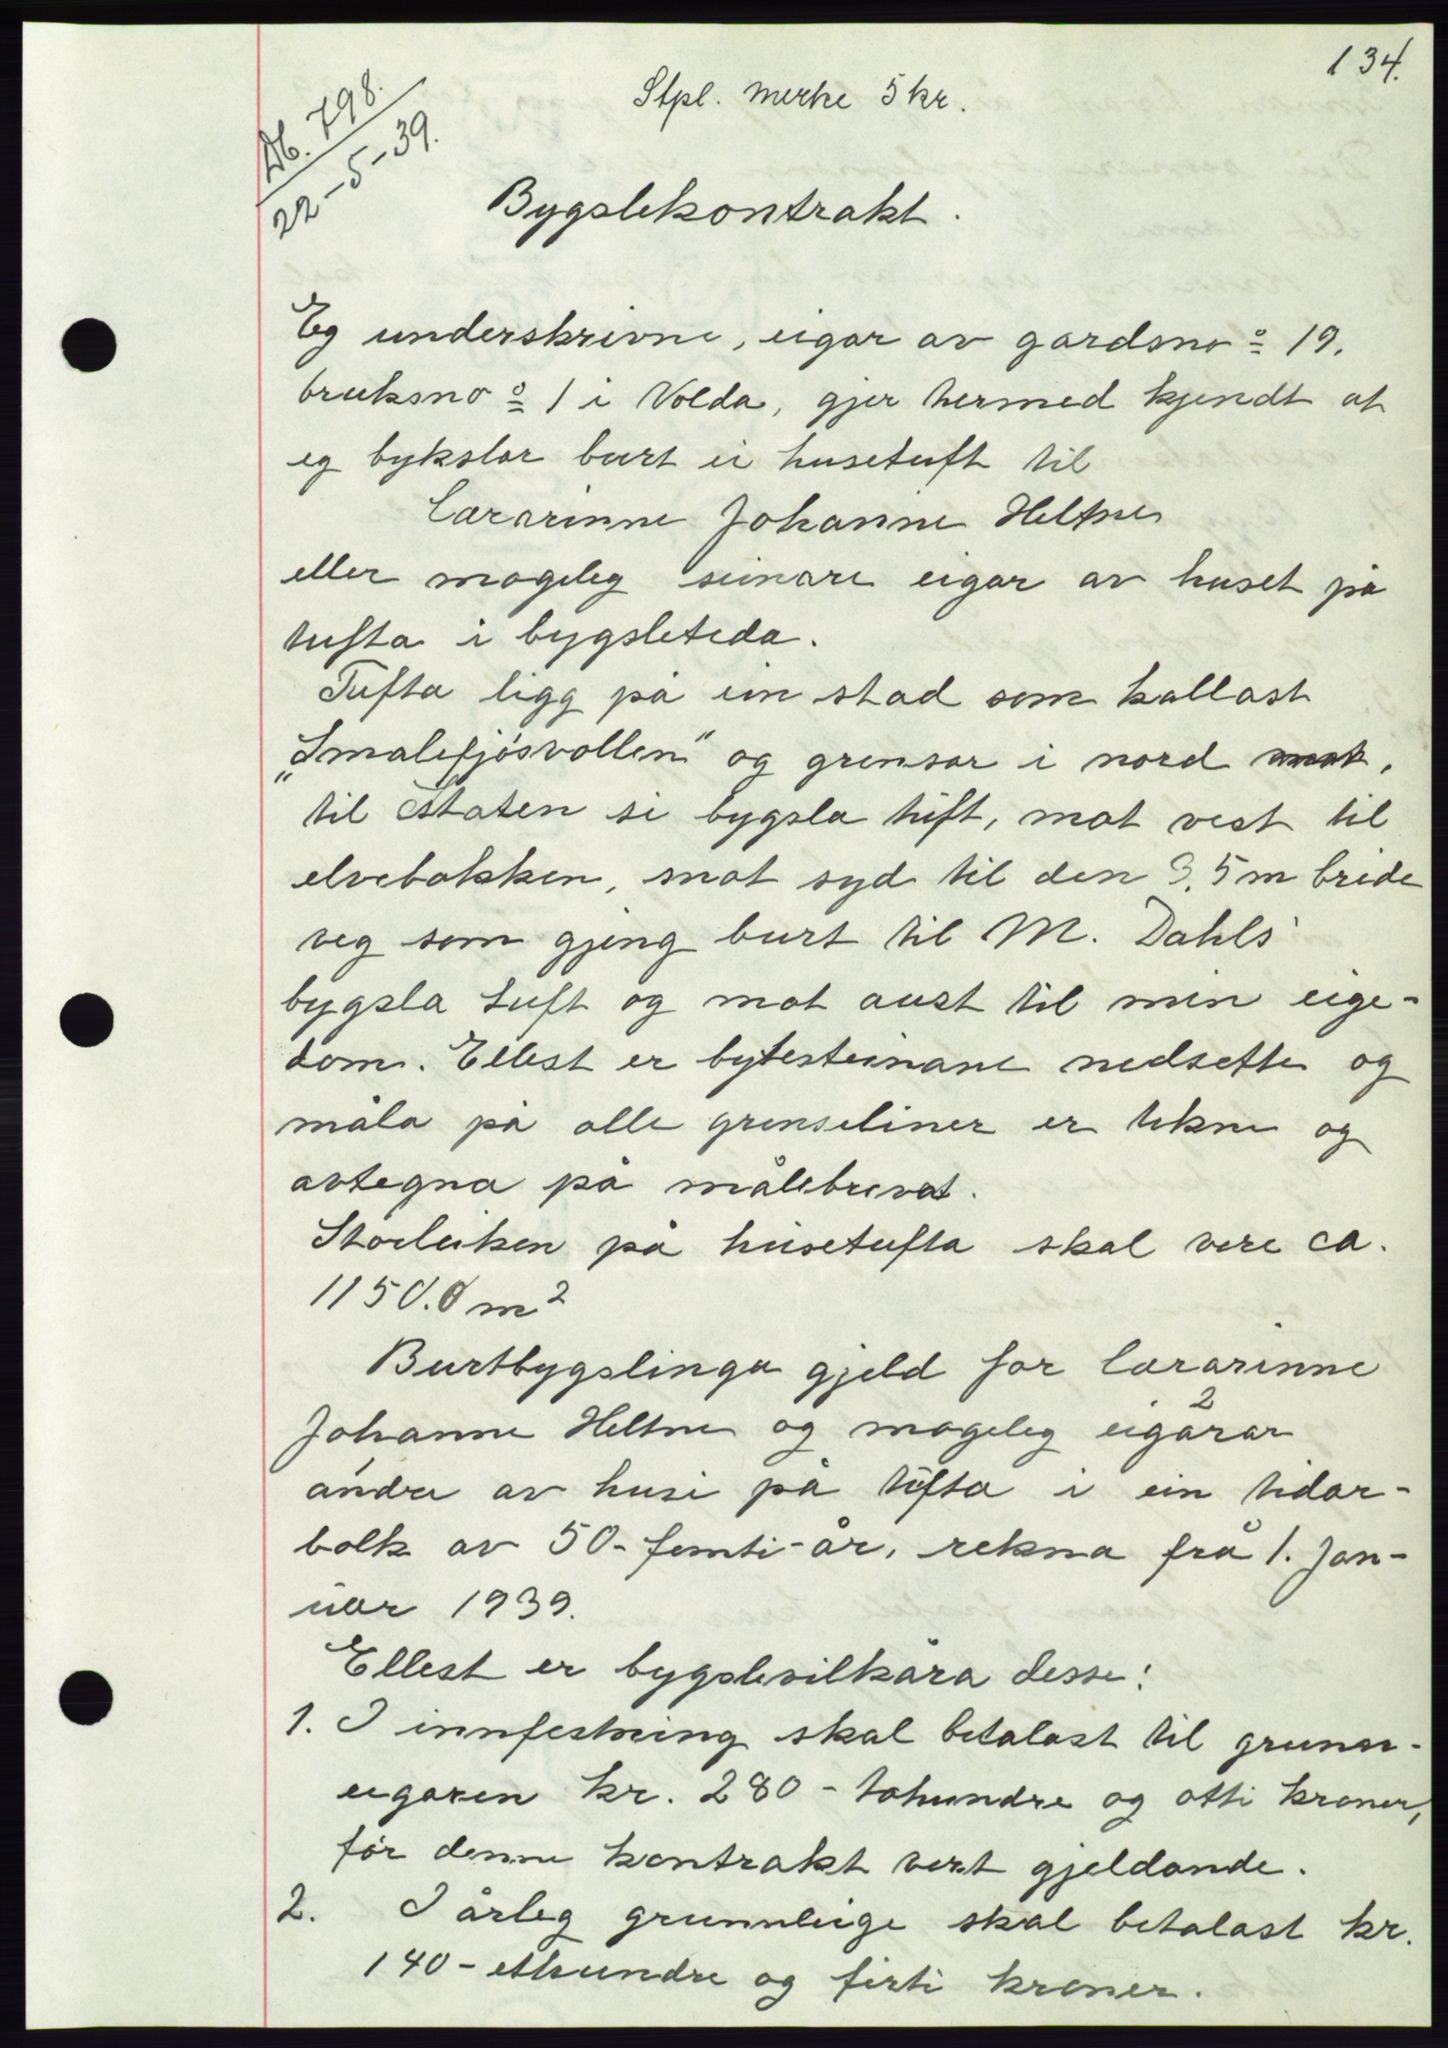 134.
Stpl. merke 5 kr.
Db. 798.
22-5-39.
Bygslekontrakt.
Eg underskrivne, eigar av gardsno º 19.
bruksno º 1 i Volda, gjer hermed kjendt at
eg bykslar burt ei husetuft til
Lærarinne Johanne Heltne
eller mogeleg seinare eigar av huset på
tufta i bygsletida.
Tufta ligg på ein stad som kallast
„Smalefjøsvollen" og grensar i nord
til Staten si bygsla tuft, mot vest til
elvebakken, mot syd til den 3,5 m breide
veg som gjeng burt til M. Dahls
bygsla tuft og mot aust til min eige-
dom. Ellest er bytesteinane nedsette og
måla på alle grenseliner er tekne og
avtegna på målebrevet.
Storleiken på husetufta skal vere ca.
1150.0 m²
Burtbygslinga gjeld for lærarinne
Johanne Heltne og mogeleg eigarar 2
andre av huse på tufta i ein tidar-
bolk av 50- femti-år, rekna frå 1. Jan-
uar 1939.
Ellest er bygslevilkåra desse:
1. I innfestning skal betalast til grunn-
eigaren kr. 280 - tohundre og otti kroner,
før denne kontrakt vert gjeldande.
2. I årleg grunnleige skal betalast kr.
140 - etthundre og firti kroner.